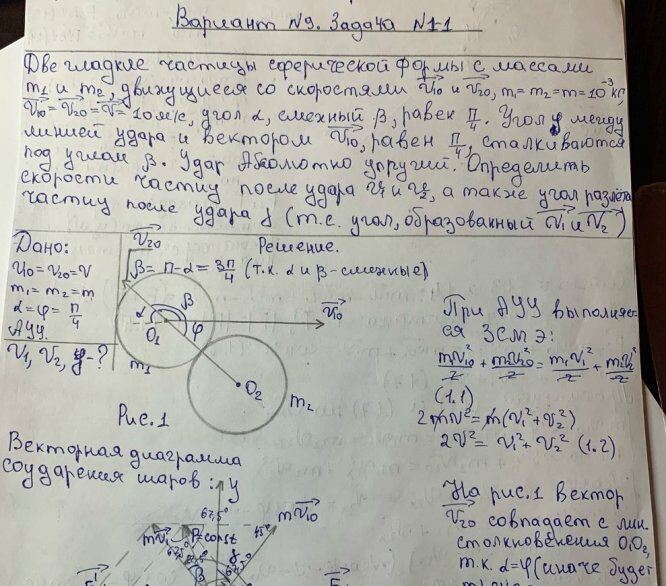 Вариант №9. Задача №1-1
Две гладкие частицы сферической формы с массами
m₁ и m₂, движущиеся со скоростями v₁₀ и v₂₀, m₁= m₂= m=10⁻³ кг,
v₁₀=v₂₀=v= 10м/с, угол α, смежный β, равен π/4. Угол φ между
линией удара и вектором v₁₀, равен π/4, сталкиваются
под углом β. Удар Абсолютно упругий. Определить
скорости частиц после удара v₁ и v₂, а также угол разлёта
частиц после удара γ (т.е. угол, образованный v₁ и v₂)
Дано:
v₁₀=v₂₀=v
m₁=m₂=m
α=φ=π/4
АУУ.
v₁, v₂, γ-?
Решение.
v₂₀
β= π-α= 3π/4 (т.к. α и β-смежные)
α β φ
v₁₀
O₁
m₁
O₂
m₂
Рис.1
При АУУ выполняет-
ся ЗСМЭ:
m₁v₁₀²/2 + m₂v₂₀²/2 = m₁v₁²/2 + m₂v₂²/2
(1.1)
2mv²=m(v₁²+v₂²)
2v²= v₁²+v₂² (1.2)
Векторная диаграмма
соударения шаров:
y
67,5°
mv₁
P=const
mv₁₀
45°
67,5°
γ
β
На рис.1 вектор
v₂₀ совпадает с лин.
столкновения O₁O₂,
т.к. α=φ(иначе будет